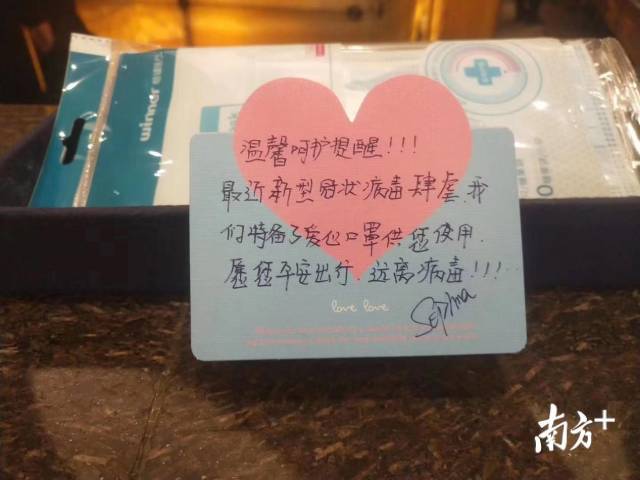 winner
温馨呵护提醒!!!
最近新型冠状病毒肆虐,我
们特备了爱心口罩供您使用.
愿您平安出行 远离病毒!!!
love love
南方+